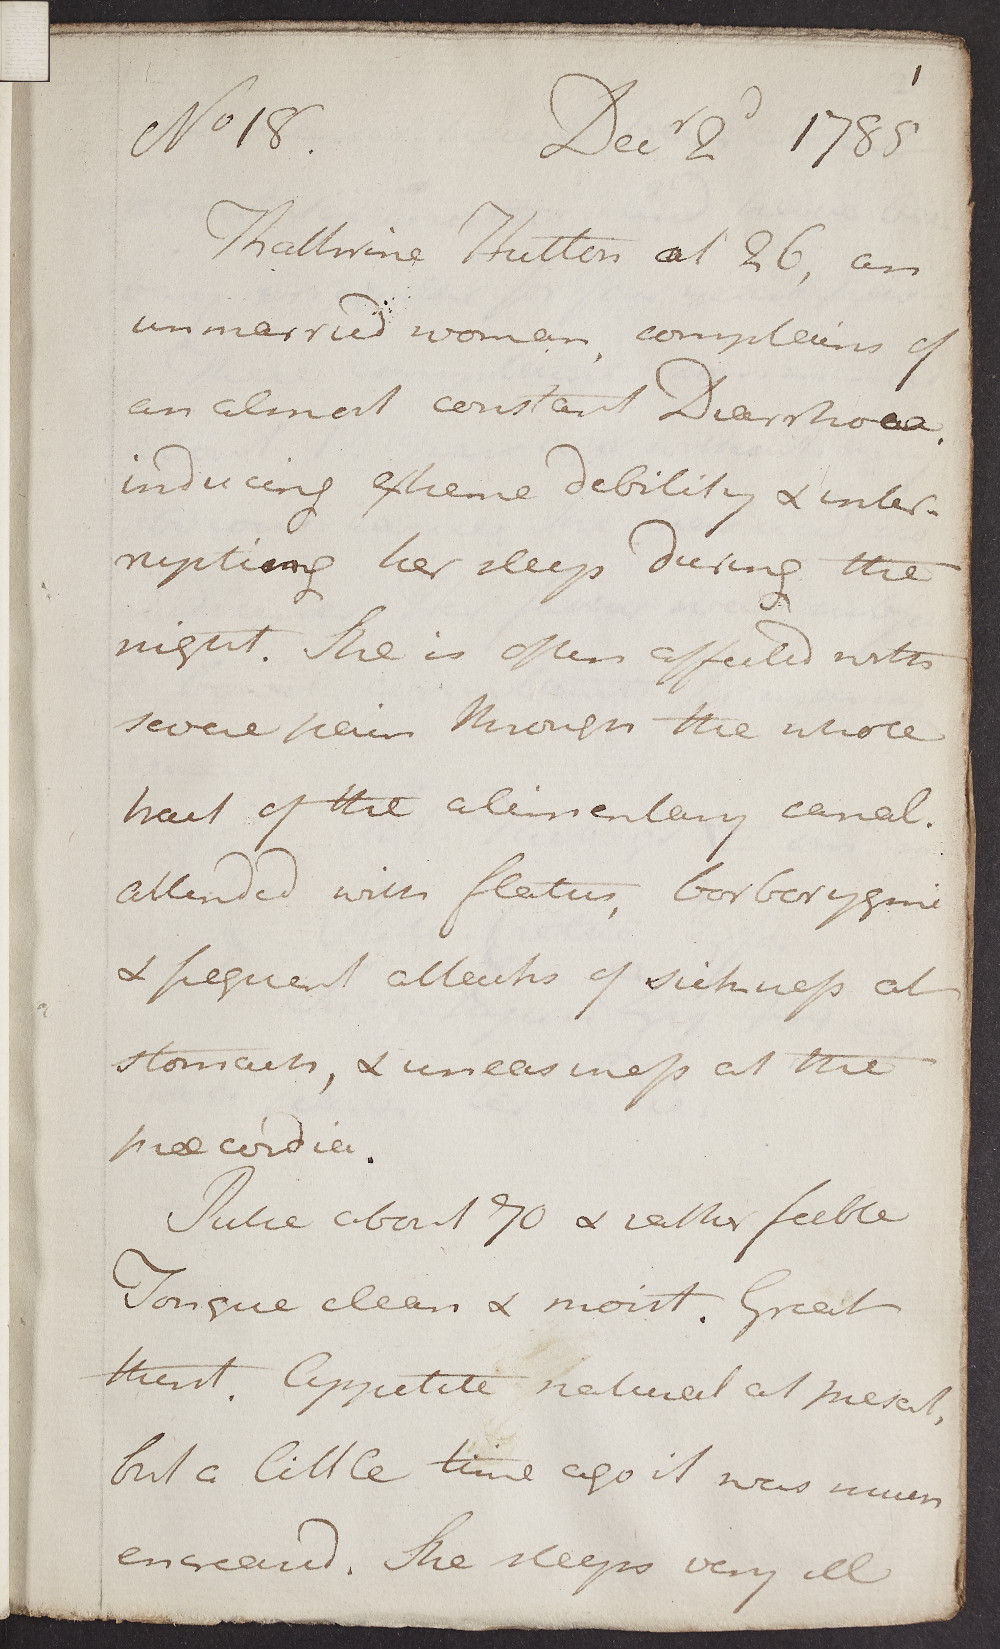 1
No 18. Decr 2d 1785
Kathrine Hutton æt 26, an
unmarried woman, complains of
an almost constant Diarrhoea.
inducing extreme debility & inter-
rupting her sleep during the
night. She is often affected with
severe pain through the whole
tract of the alimentary canal.
attended with flatus, borborygmi
& frequent attacks of sickness at
stomach, & uneasiness at the
præcordia.
Pulse about 70 & rather feeble
Tongue clean & moist. Great
thirst. Appetite natural at present,
but a little time ago it was much
encreased. She sleeps very ill